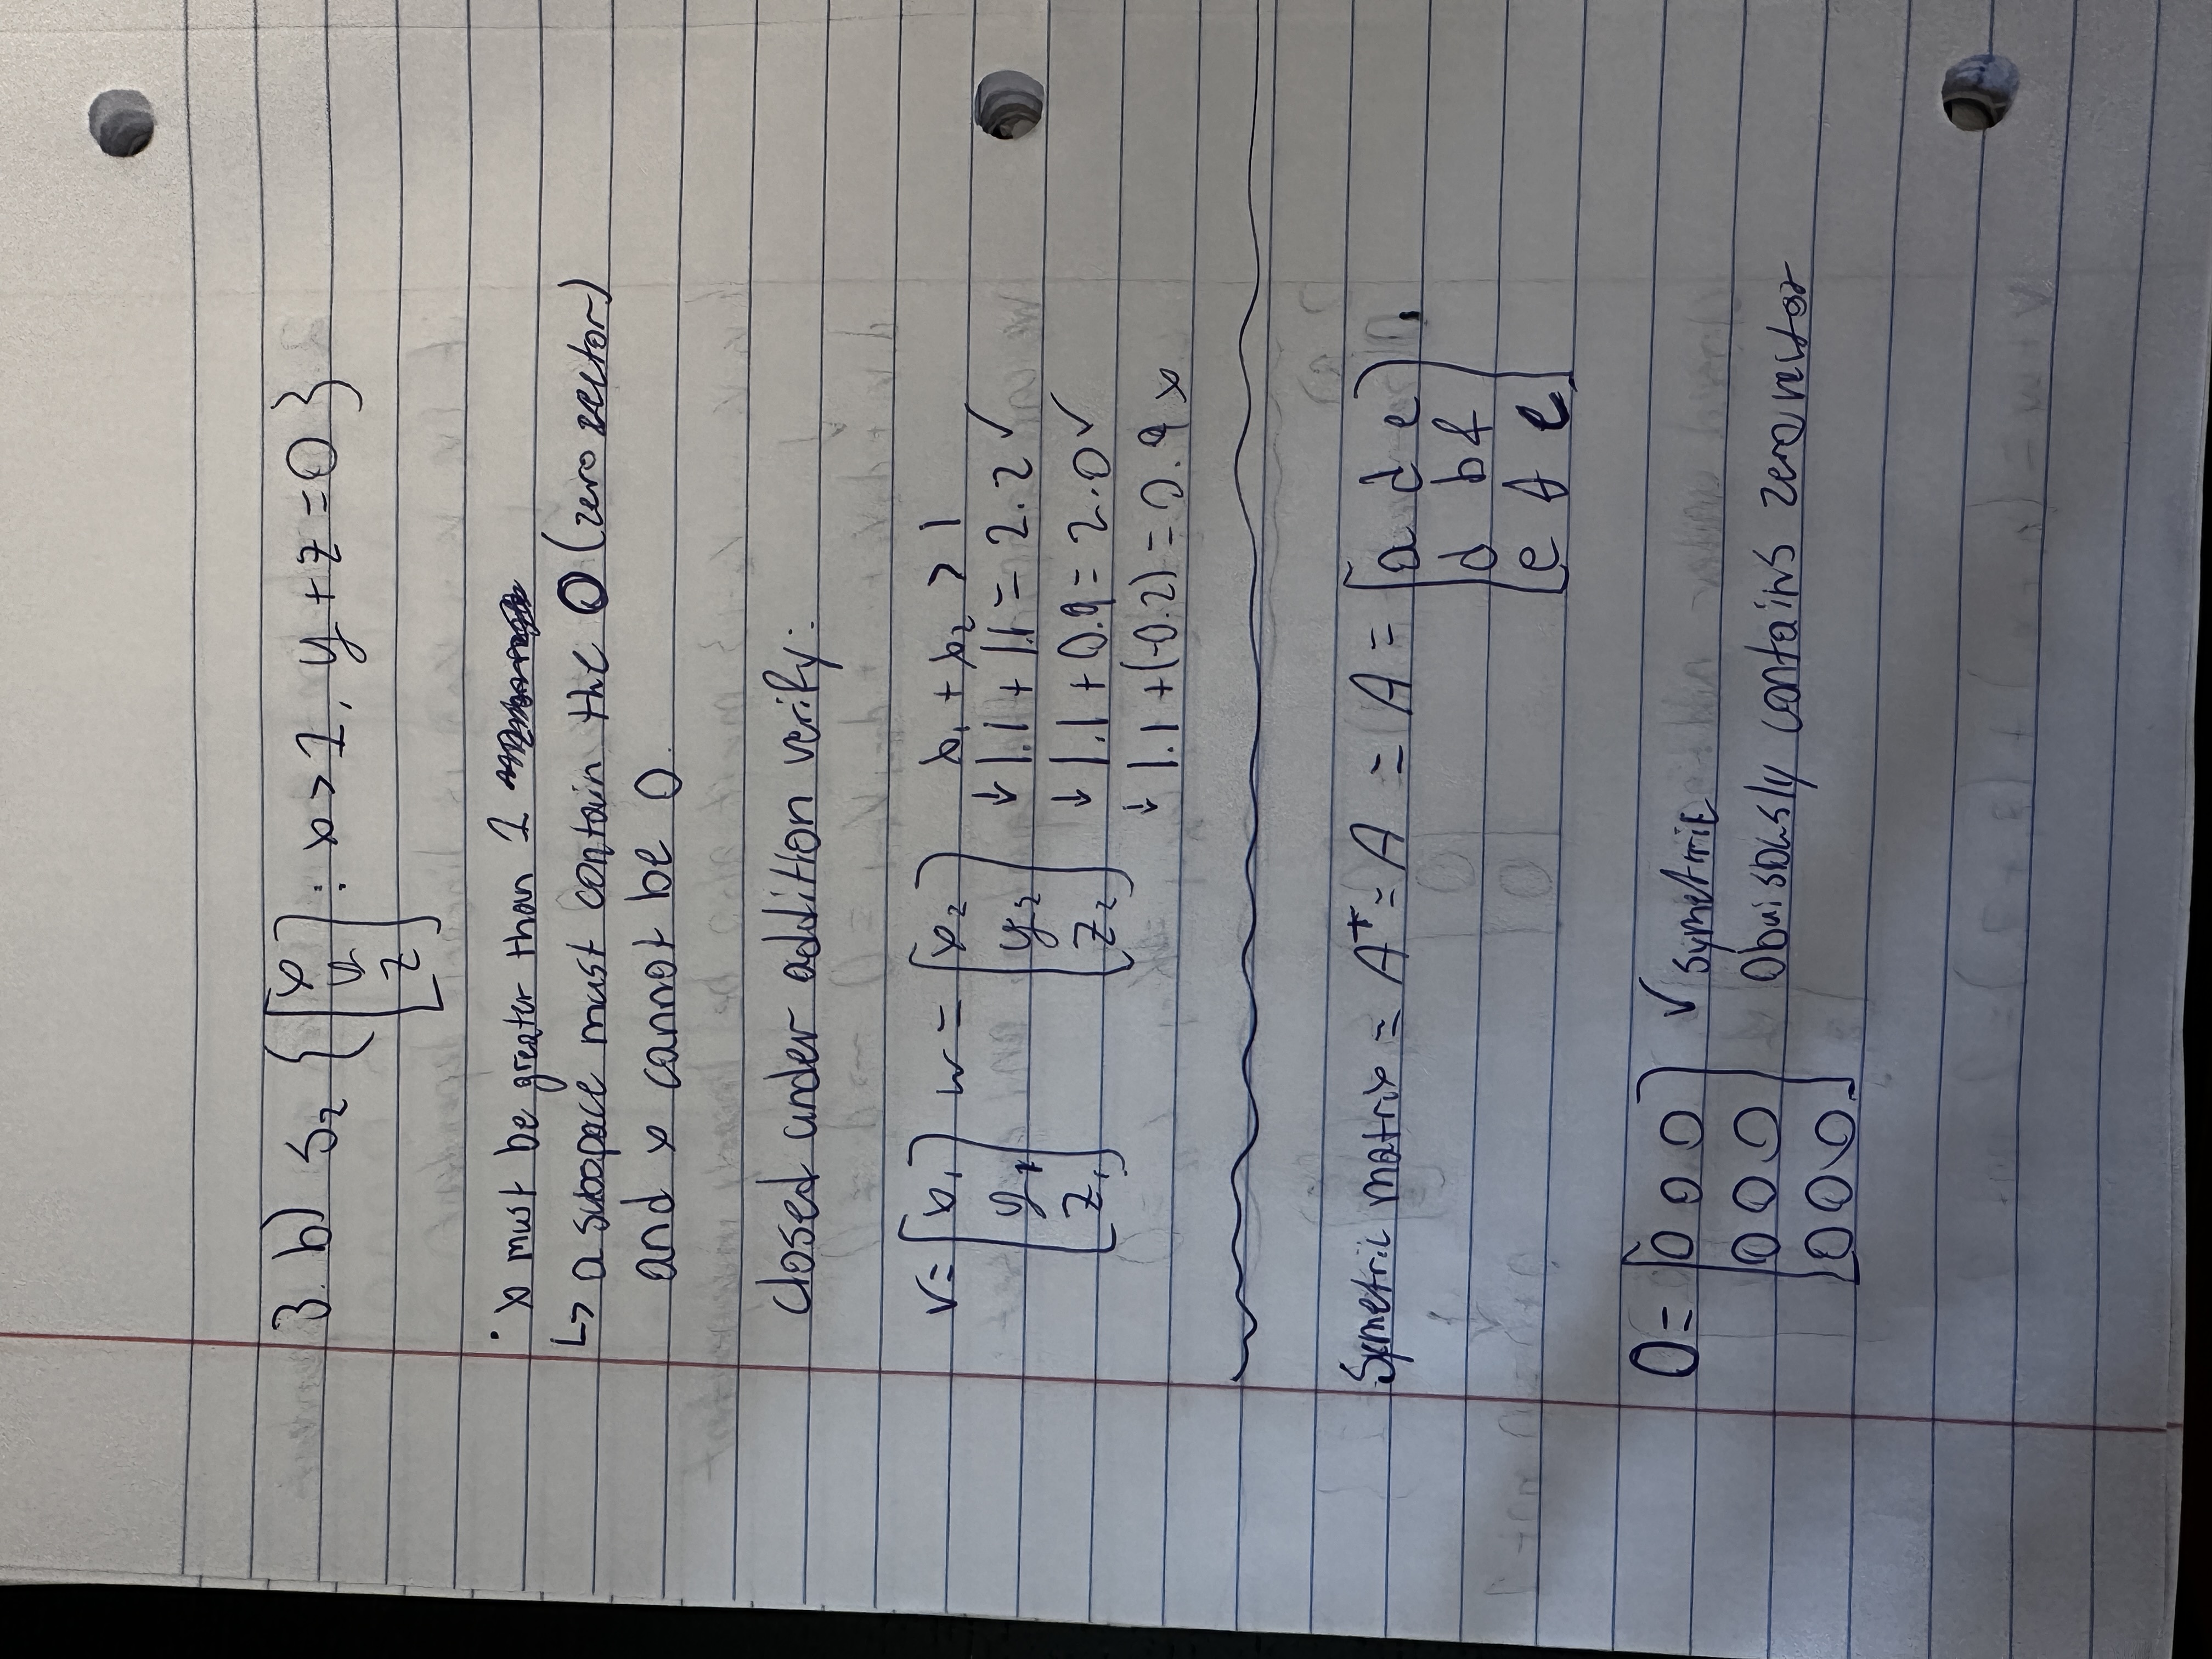 3. b) S₂ { [x y z] : x > 1, y + z = 0 }
· x must be greater than 1
↳ a subspace must contain the 0 (zero vector)
and x cannot be 0.
closed under addition verify:
v = [x₁ y₁ z₁] w = [x₂ y₂ z₂] x₁ + x₂ > 1
↓ 1.1 + 1.1 = 2.2 ✓
↓ 1.1 + 0.9 = 2.0 ✓
↓ 1.1 + (-0.2) = 0.9 x
Symetric matrix = Aᵀ = A = A = [a d e
d b f
e f c]
0 = [0 0 0
0 0 0
0 0 0]
✓ symetric
Obuisously contains zero vector